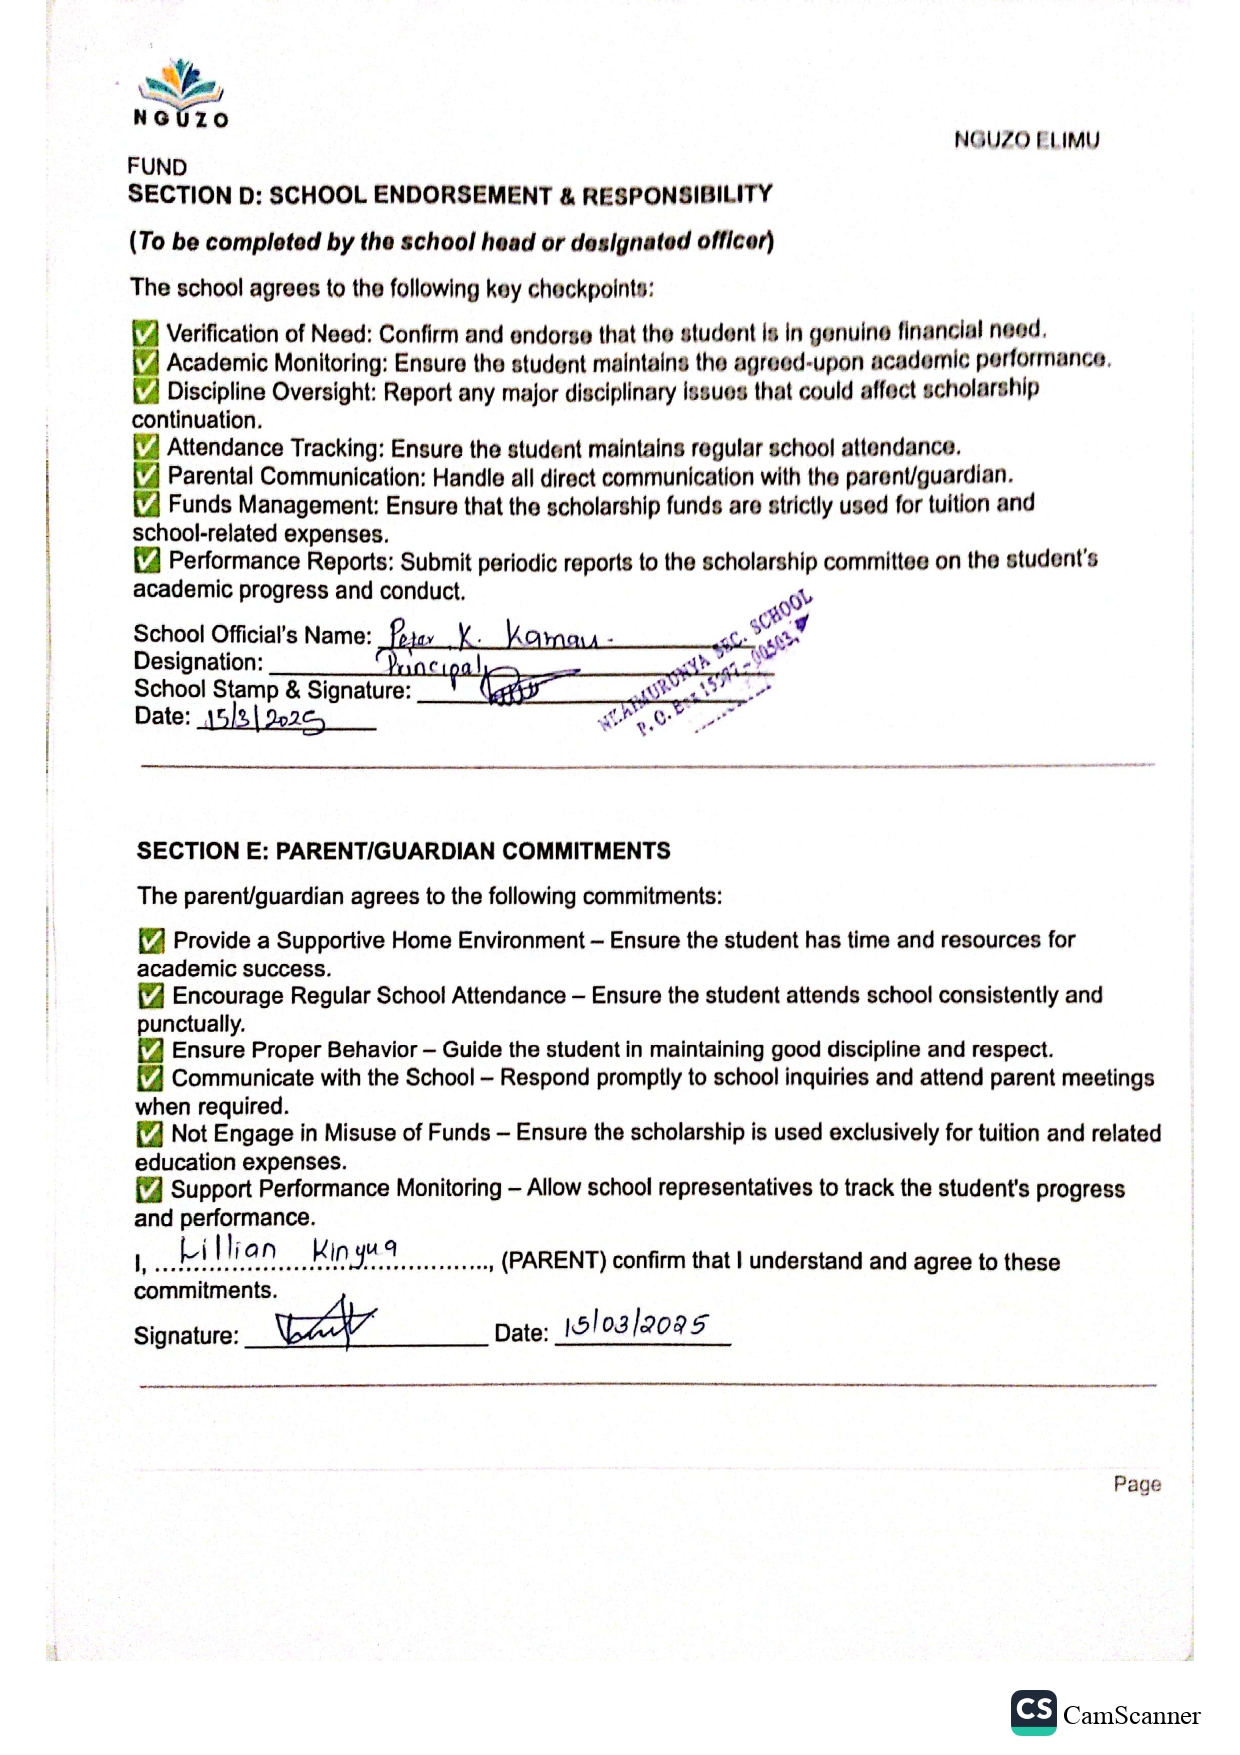 NGUZO
NGUZO ELIMU
FUND
SECTION D: SCHOOL ENDORSEMENT & RESPONSIBILITY
(To be completed by the school head or designated officer)
The school agrees to the following key checkpoints:
✅ Verification of Need: Confirm and endorse that the student is in genuine financial need.
✅ Academic Monitoring: Ensure the student maintains the agreed-upon academic performance.
✅ Discipline Oversight: Report any major disciplinary issues that could affect scholarship
continuation.
✅ Attendance Tracking: Ensure the student maintains regular school attendance.
✅ Parental Communication: Handle all direct communication with the parent/guardian.
✅ Funds Management: Ensure that the scholarship funds are strictly used for tuition and
school-related expenses.
✅ Performance Reports: Submit periodic reports to the scholarship committee on the student's
academic progress and conduct.
School Official's Name: Peter K. Kamau
Designation: Principal
School Stamp & Signature:
SEC. SCHOOL
P. O. Box
Date: 15/3/2025
SECTION E: PARENT/GUARDIAN COMMITMENTS
The parent/guardian agrees to the following commitments:
✅ Provide a Supportive Home Environment – Ensure the student has time and resources for
academic success.
✅ Encourage Regular School Attendance – Ensure the student attends school consistently and
punctually.
✅ Ensure Proper Behavior – Guide the student in maintaining good discipline and respect.
✅ Communicate with the School – Respond promptly to school inquiries and attend parent meetings
when required.
✅ Not Engage in Misuse of Funds – Ensure the scholarship is used exclusively for tuition and related
education expenses.
✅ Support Performance Monitoring – Allow school representatives to track the student's progress
and performance.
I, Lillian Kinyua, (PARENT) confirm that I understand and agree to these
commitments.
Signature: Date: 15/03/2025
Page
CS CamScanner